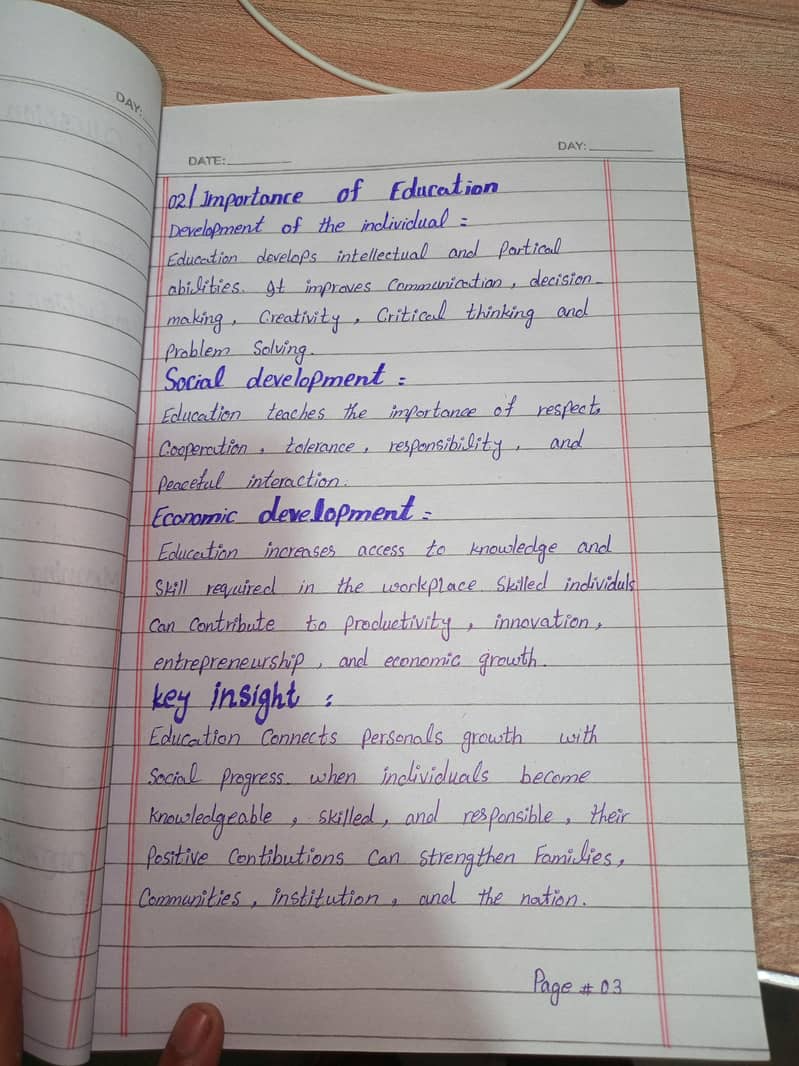 DAY:
DATE:
DAY:
02/ Importance of Education
Development of the individual :
Education develops intellectual and Partical
abilities. It improves Communication, decision-
making, Creativity, Critical thinking and
Problem Solving.
Social development :
Education teaches the importance of respect,
Cooperation, tolerance, responsibility, and
Peaceful interaction.
Economic development :
Education increases access to knowledge and
Skill required in the workplace. Skilled individuls
Can Contribute to Productivity, innovation,
entrepreneurship, and economic growth.
Key insight :
Education Connects Personals growth with
Social Progress. when individuals become
Knowledgeable, skilled, and responsible, their
Positive Contibutions Can Strengthen Families,
Communities, institution, and the nation.
Page # 03